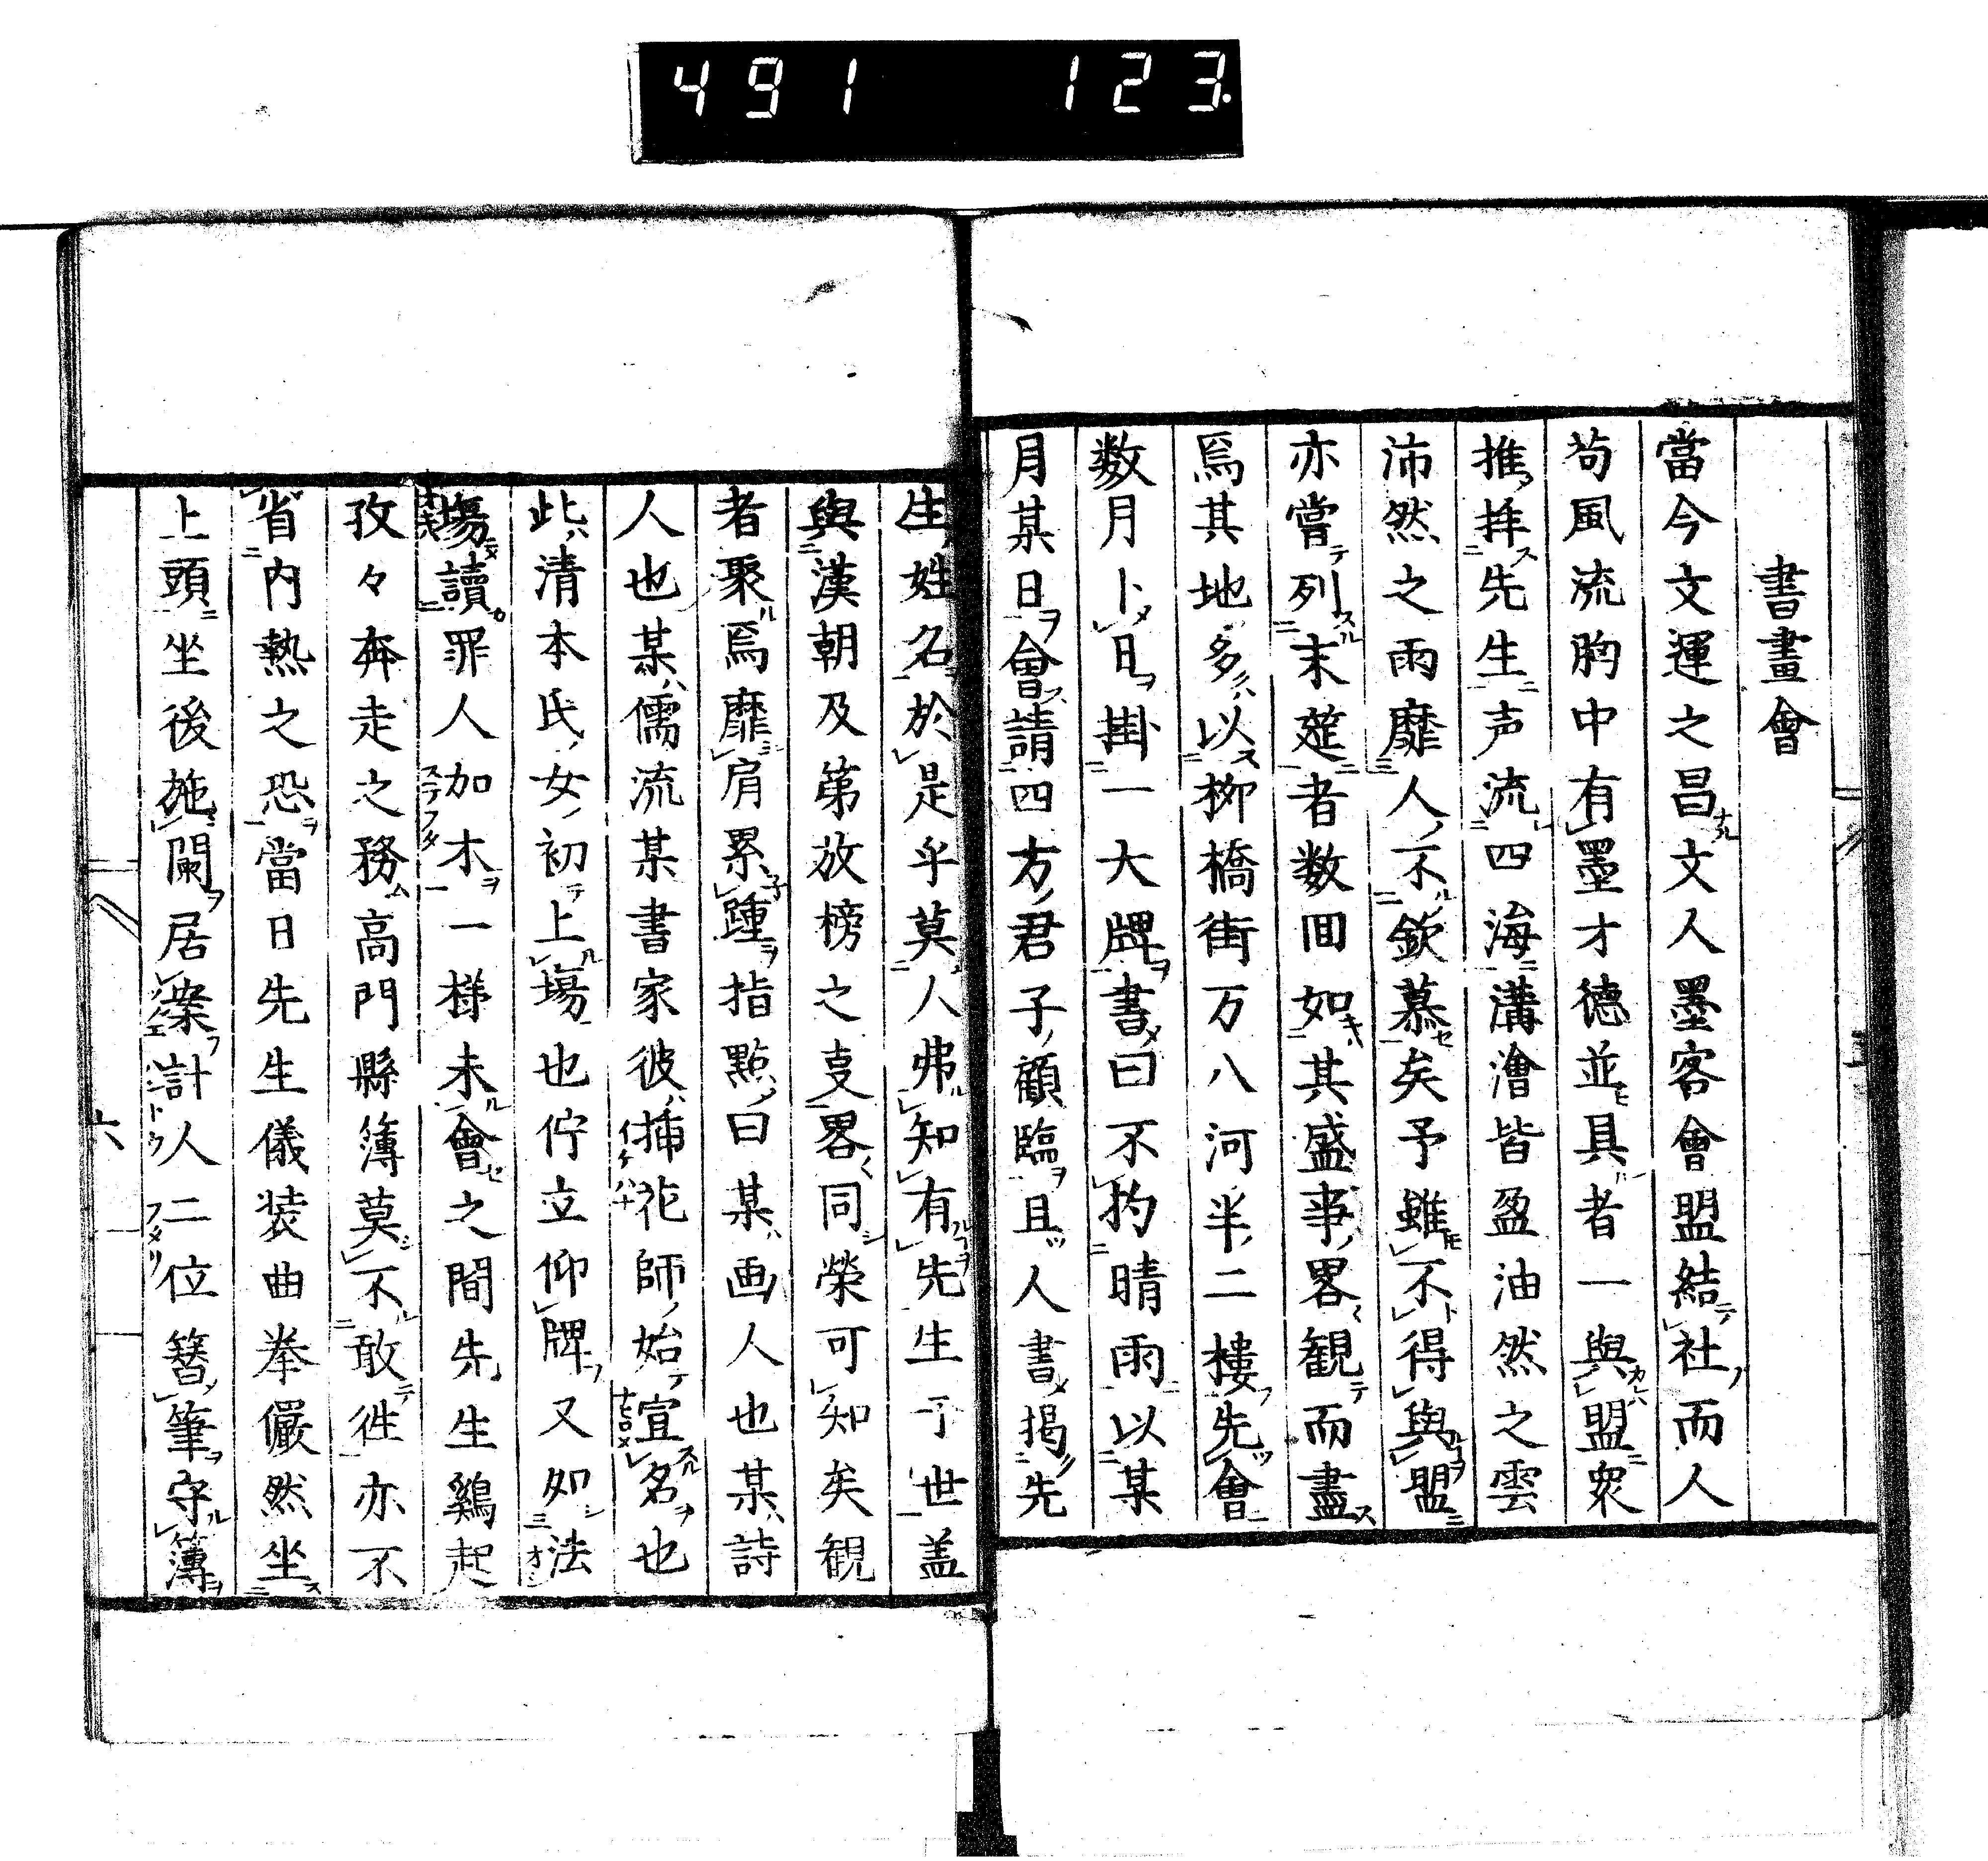 491 123.
書畫會
當今文運之昌文人墨客會盟結社而人
苟風流胸中有墨才德並具者一與盟衆
推拝先生声流四海溝澮皆盈油然之雲
沛然之雨靡人不欽慕矣予雖不得與盟
亦嘗列末筵者数回如其盛事畧観而盡
焉其地多以柳橋街万八河半二樓先會
数月卜日掛一大牌書曰不拘晴雨以某
月某日會請四方君子顧臨且人書掲先
生姓名於是乎莫人弗知有先生于世盖
與漢朝及第放榜之㕝畧同榮可知矣観
者聚焉靡肩累踵指點曰某画人也某詩
人也某儒流某書家彼挿花師始宣名也
此清本氏女初上場也佇立仰牌又如法
場讀罪人加木一様未會之間先生鷄起
孜々奔走之務高門縣簿莫不敢徃亦不
省内熱之恐當日先生儀装曲拳儼然坐
上頭坐後施闌居案計人二位簪筆守簿
六